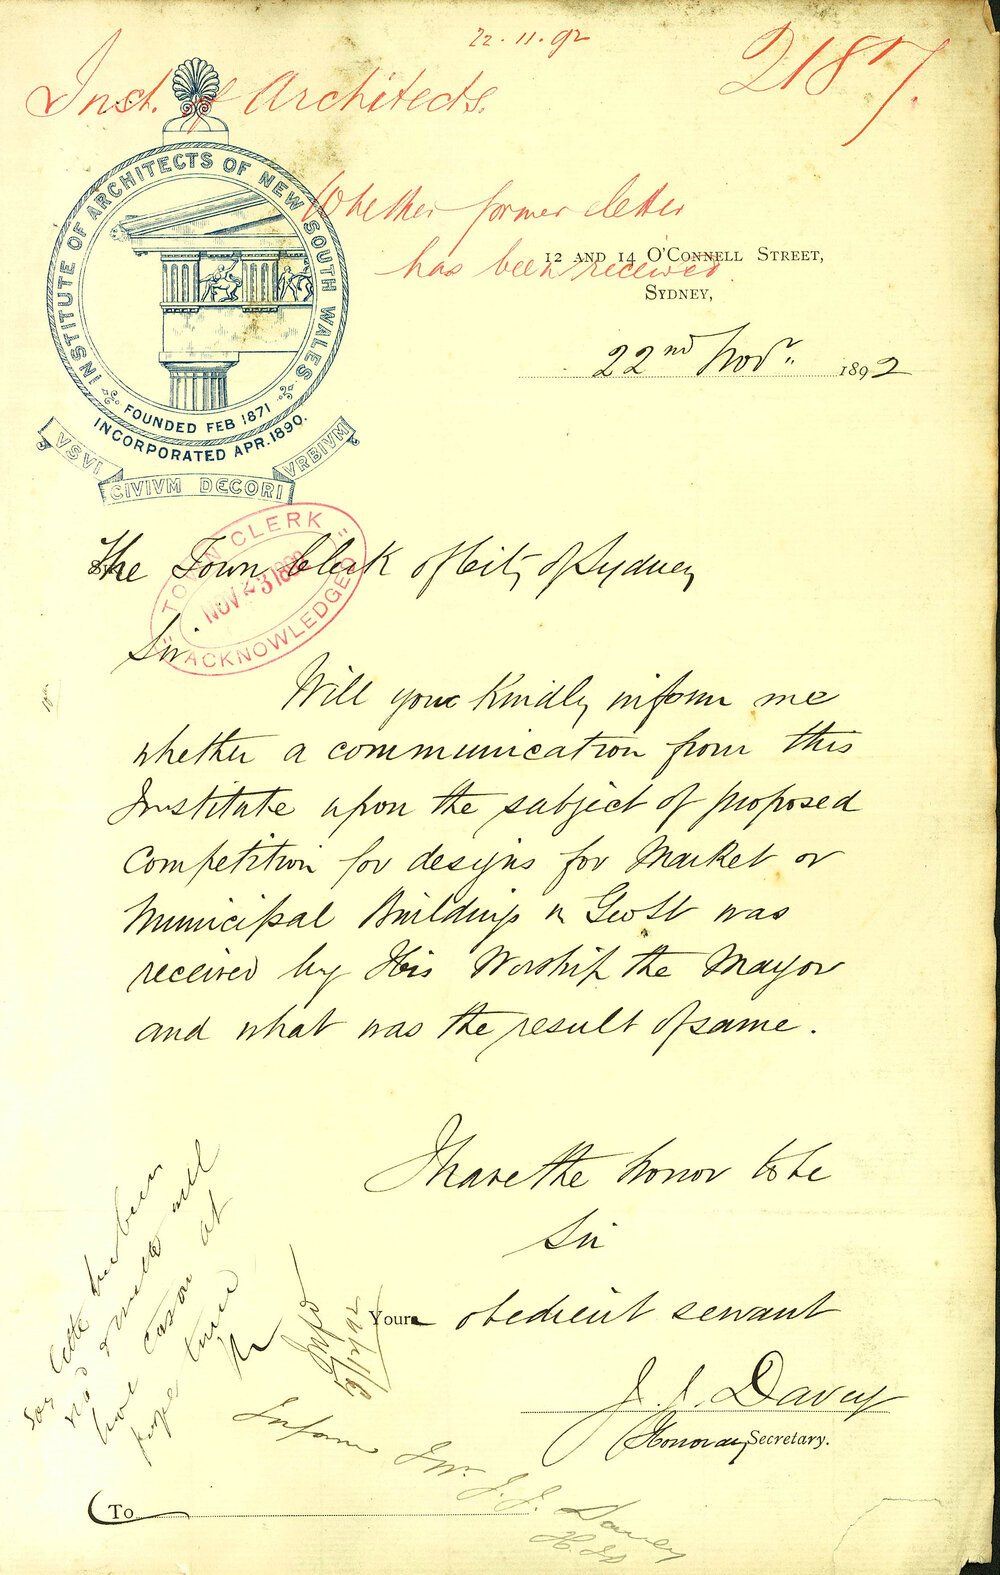 22.11.92
2187.
Inst. of Architects.
INSTITUTE OF ARCHITECTS OF NEW SOUTH WALES
FOUNDED FEB 1871
INCORPORATED APR. 1890.
VSVI CIVIVM DECORI VRBIVM
Whether former letter
has been received
12 AND 14 O'CONNELL STREET,
SYDNEY,
22nd Novr. 1892
The Town Clerk of City of Sydney
"TOWN CLERK"
NOV 23 1892
"ACKNOWLEDGED"
Sir
Will you Kindly inform me
whether a communication from this
Institute upon the subject of proposed
Competition for designs for Market or
Municipal Buildings in Geo St was
received by His Worship the Mayor
and what was the result of same.
I have the honor to be
Sir
Your obedient servant
J. J. Davey
Honorary Secretary.
Say letter has been
recd & will
have at
proper time
6/12/92
Inform Mr. J. J. Davey
To